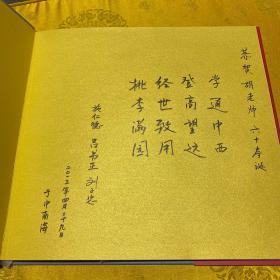 恭贺胡老师六十寿诞
学通中西
登高望远
经世致用
桃李满园
吕书正
二〇一三年四月二十九日
于中南海